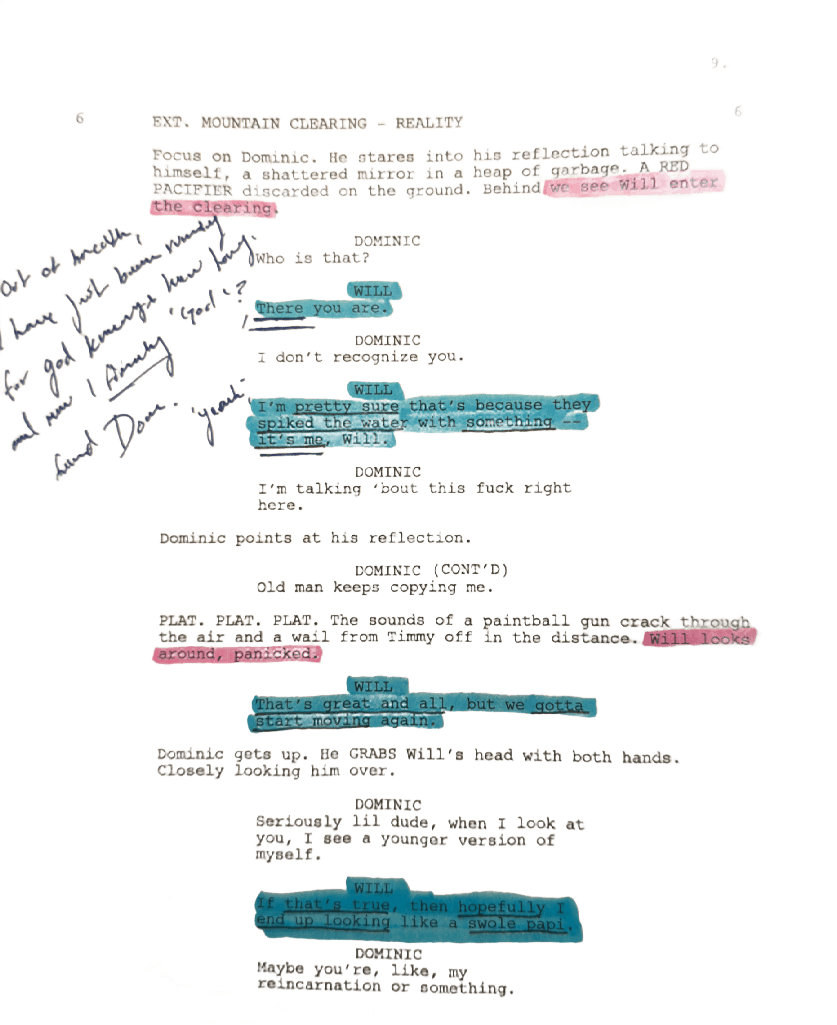 9.
6 EXT. MOUNTAIN CLEARING - REALITY 6
Focus on Dominic. He stares into his reflection talking to
himself, a shattered mirror in a heap of garbage. A RED
PACIFIER discarded on the ground. Behind we see Will enter
the clearing.
Out of breath,
I have just been running
for god knows how long.
and now I finally
found Dom.
DOMINIC
Who is that?
'God'?
WILL
There you are.
DOMINIC
I don't recognize you.
'yeah'
WILL
I'm pretty sure that's because they
spiked the water with something --
it's me, Will.
DOMINIC
I'm talking 'bout this fuck right
here.
Dominic points at his reflection.
DOMINIC (CONT'D)
Old man keeps copying me.
PLAT. PLAT. PLAT. The sounds of a paintball gun crack through
the air and a wail from Timmy off in the distance. Will looks
around, panicked.
WILL
That's great and all, but we gotta
start moving again.
Dominic gets up. He GRABS Will's head with both hands.
Closely looking him over.
DOMINIC
Seriously lil dude, when I look at
you, I see a younger version of
myself.
WILL
If that's true, then hopefully I
end up looking like a swole papi.
DOMINIC
Maybe you're, like, my
reincarnation or something.